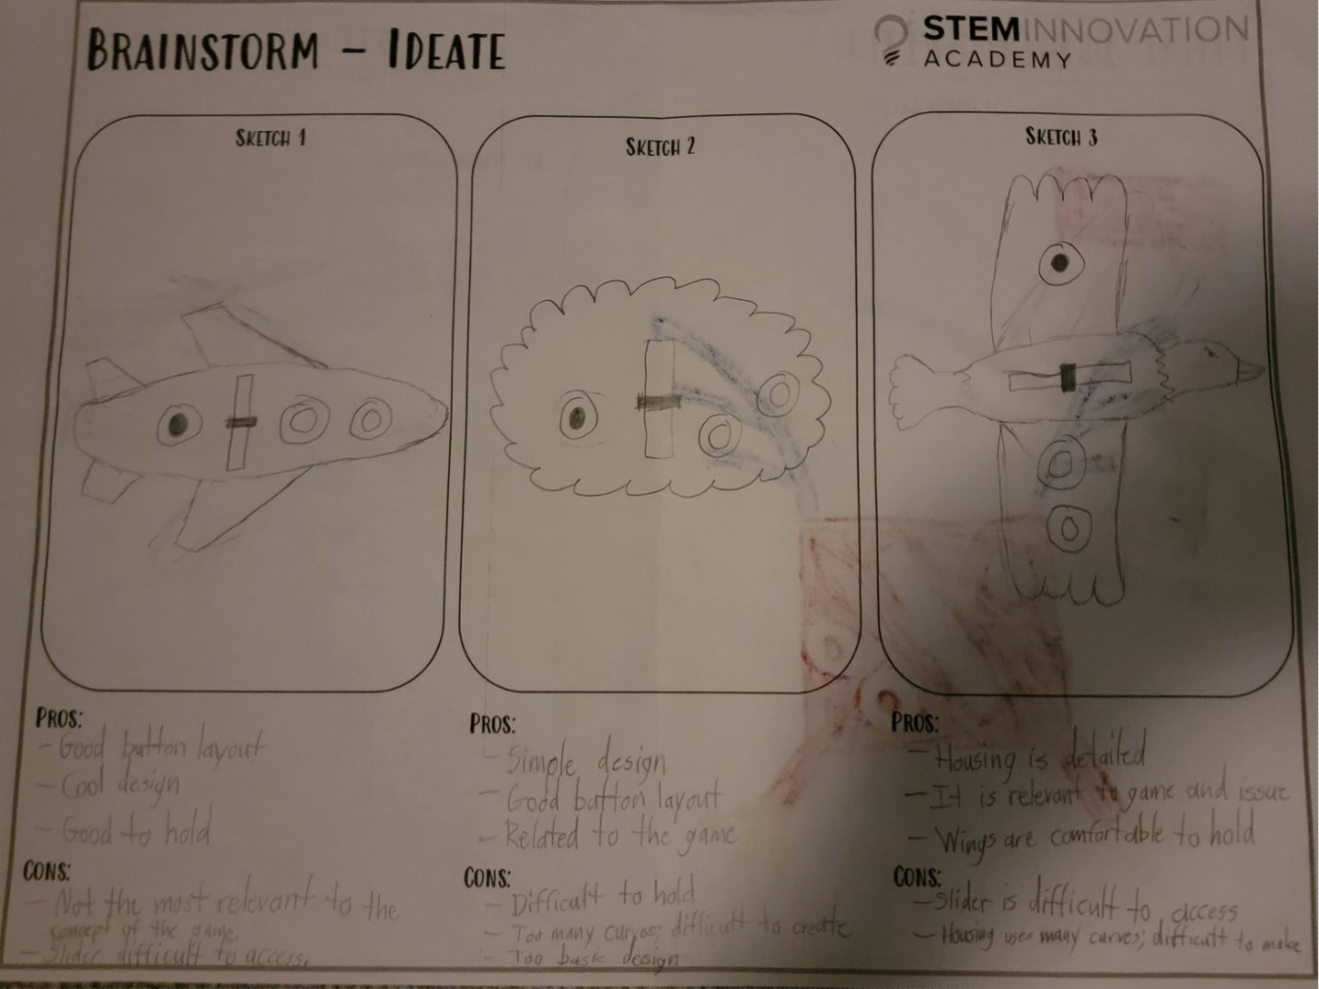 BRAINSTORM - IDEATE
STEMINNOVATION
ACADEMY
SKETCH 1
SKETCH 2
SKETCH 3
PROS:
- Good button layout
- Cool design
- Good to hold
CONS:
- Not the most relevant to the
concept of the game
- Slider difficult to access,
PROS:
- Simple design
- Good button layout
- Related to the game
CONS:
- Difficult to hold
- Too many curves; difficult to create
- Too basic design
PROS:
- Housing is detailed
- It is relevant to game and issue
- Wings are comfortable to hold
CONS:
- Slider is difficult to access
- Housing uses many curves; difficult to make